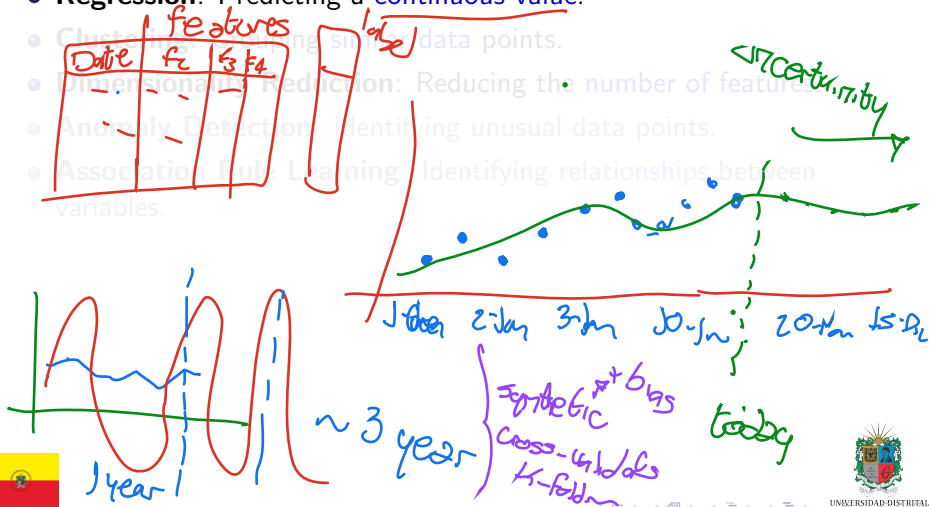 • Regression: Predicting a continuous value.
• Clustering: Grouping similar data points.
• Dimensionality Reduction: Reducing the number of features
• Anomaly Detection: Identifying unusual data points.
• Association Rule Learning: Identifying relationships between
variables.
features
label
Date f2 f3 F4
2-Jan 3-Jan
today
1 year
~ 3 year
synthetic + bias
K-fold
UNIVERSIDAD DISTRITAL